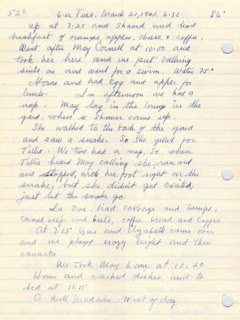 52° 6 Tues. March 21, 1961 6-12 86°
up at 7-25 and shaved and had
breakfast of oranges, apples, cheese & coffee.
Went after May Connell at 10:00 and
took her here and we put bathing
suits on and went for a swim. Water 75°
Home and had egg and apples for
lunch. In afternoon we has a
nap. May lay in the lounge in the
yard, where a shower came up.
She walked to the back of the yard
and saw a snake. So she yelled for
Tillie. We two had a nap, so when
Tillie heard May calling she ran out
and stepped, with her foot right on the
snake, but she didn't get excited,
just let the snake go
In Eve. had cabbage and turnips,
corned beef and beets, coffee bread and coffee
At 7.15 Gus and Elizabeth came over
and we played crazy eight and then
canasta
We took May home at 10.20
Home and washed dishes and to
bed at 11.15